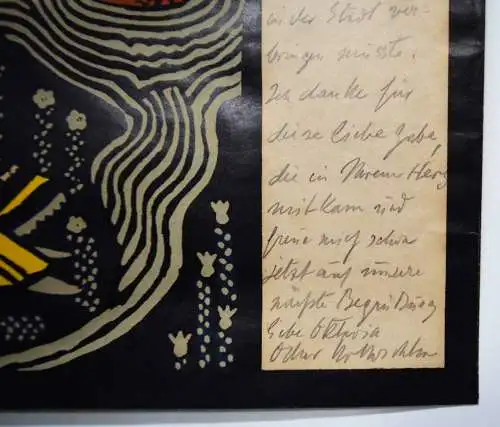 in der Stadt ver-
bringen müsste.
Ich danke für
diese liebe Gabe,
die in Ihrem Herz
mitkam und
freue mich schon
jetzt auf unsere
nächste Begrüßung
Liebe Oktavia